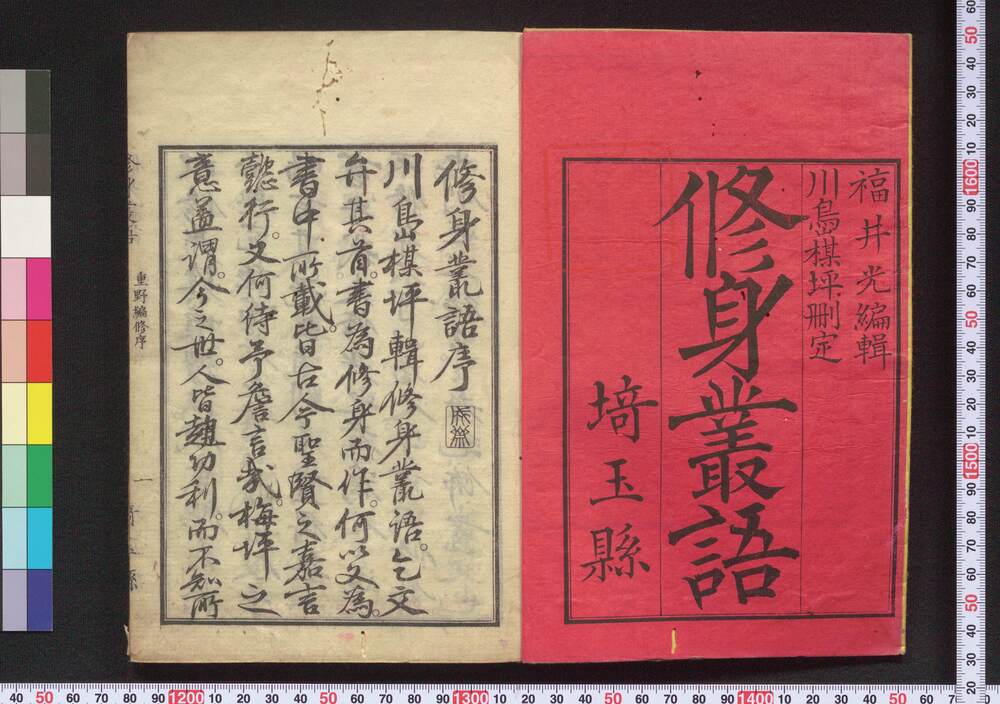 福井光編輯
川島楳坪刪定
修身叢語
埼玉縣
修身叢語序
川島楳坪輯修身叢語。乞文
弁其首。書為修身而作。何以文為。
書中所載皆日古今聖賢之嘉言
懿行。又何待予詹言哉。梅坪之
意蓋謂。今之世。人皆趨功利。而不知所
重野編修序
一